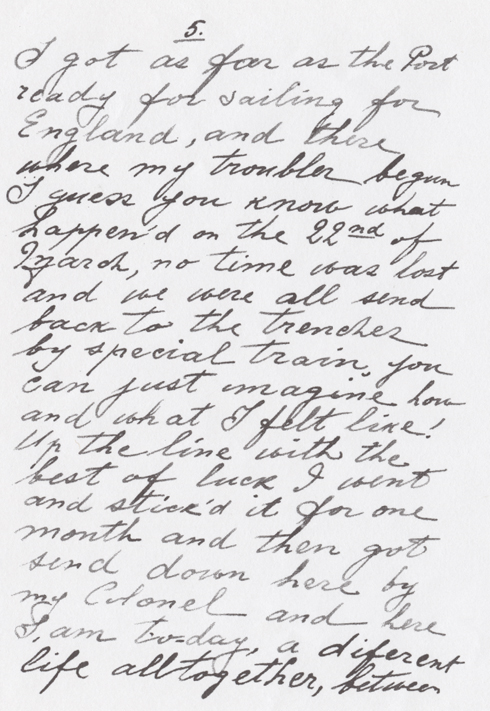 5.
I got as far as the Port
ready for sailing for
England, and there
where my troubles begun
I guess you know what
happen'd on the 22nd of
March, no time was lost
and we were all send
back to the trenches
by special train, you
can just imagine how
and what I felt like!
Up the line with the
best of luck I went
and stick'd it for one
month and then got
send down here by
my Colonel and here
I, am to-day, a diferent
life alltogether, between